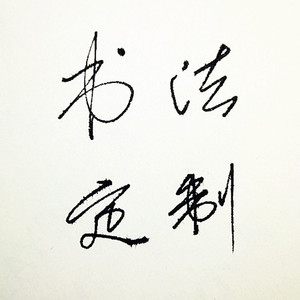 书法
定制